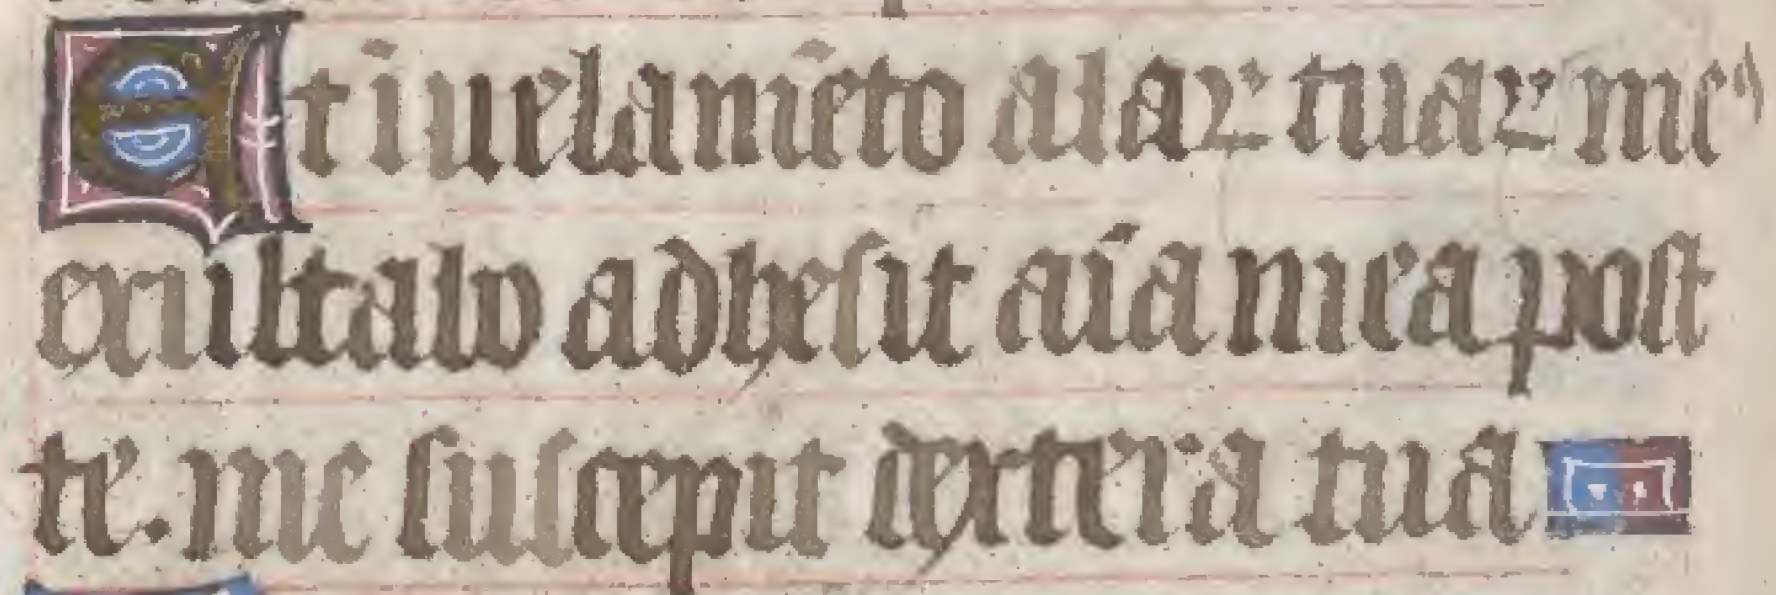 Et i uelamēto alaꝝ tuaꝝ me
exultabo adhesit aīa mea post
te. me suscepit dextera tua